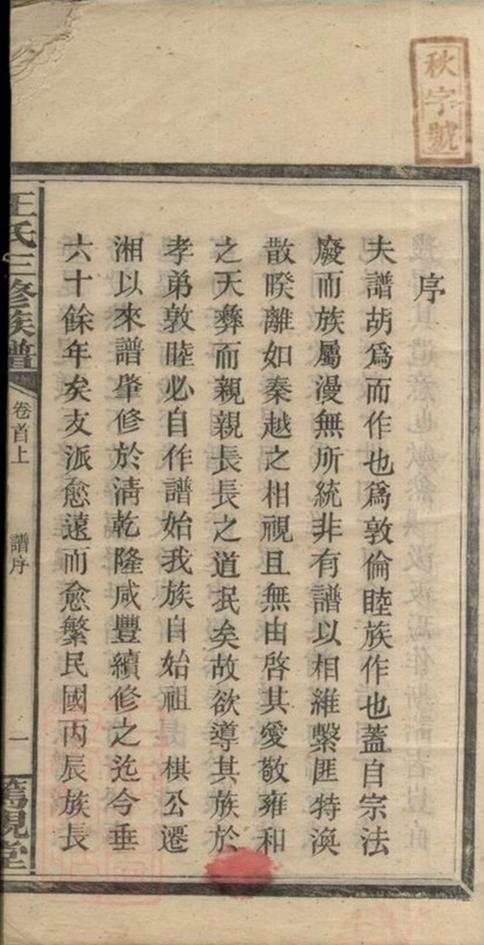 秋字號
序
夫譜胡爲而作也爲敦倫睦族作也蓋自宗法
廢而族屬漫無所統非有譜以相維繫匪特渙
散暌離如秦越之相視且無由啓其愛敬雍和
之天彝而親親長長之道抿矣故欲導其族於
孝弟敦睦必自作譜始我族自始祖 棋公遷
湘以來譜肇修於淸乾隆咸豐續修之迄今垂
六十餘年矣支派愈遠而愈繁民國丙辰族長
王氏三修族譜 卷首上 譜序 一 篤親堂